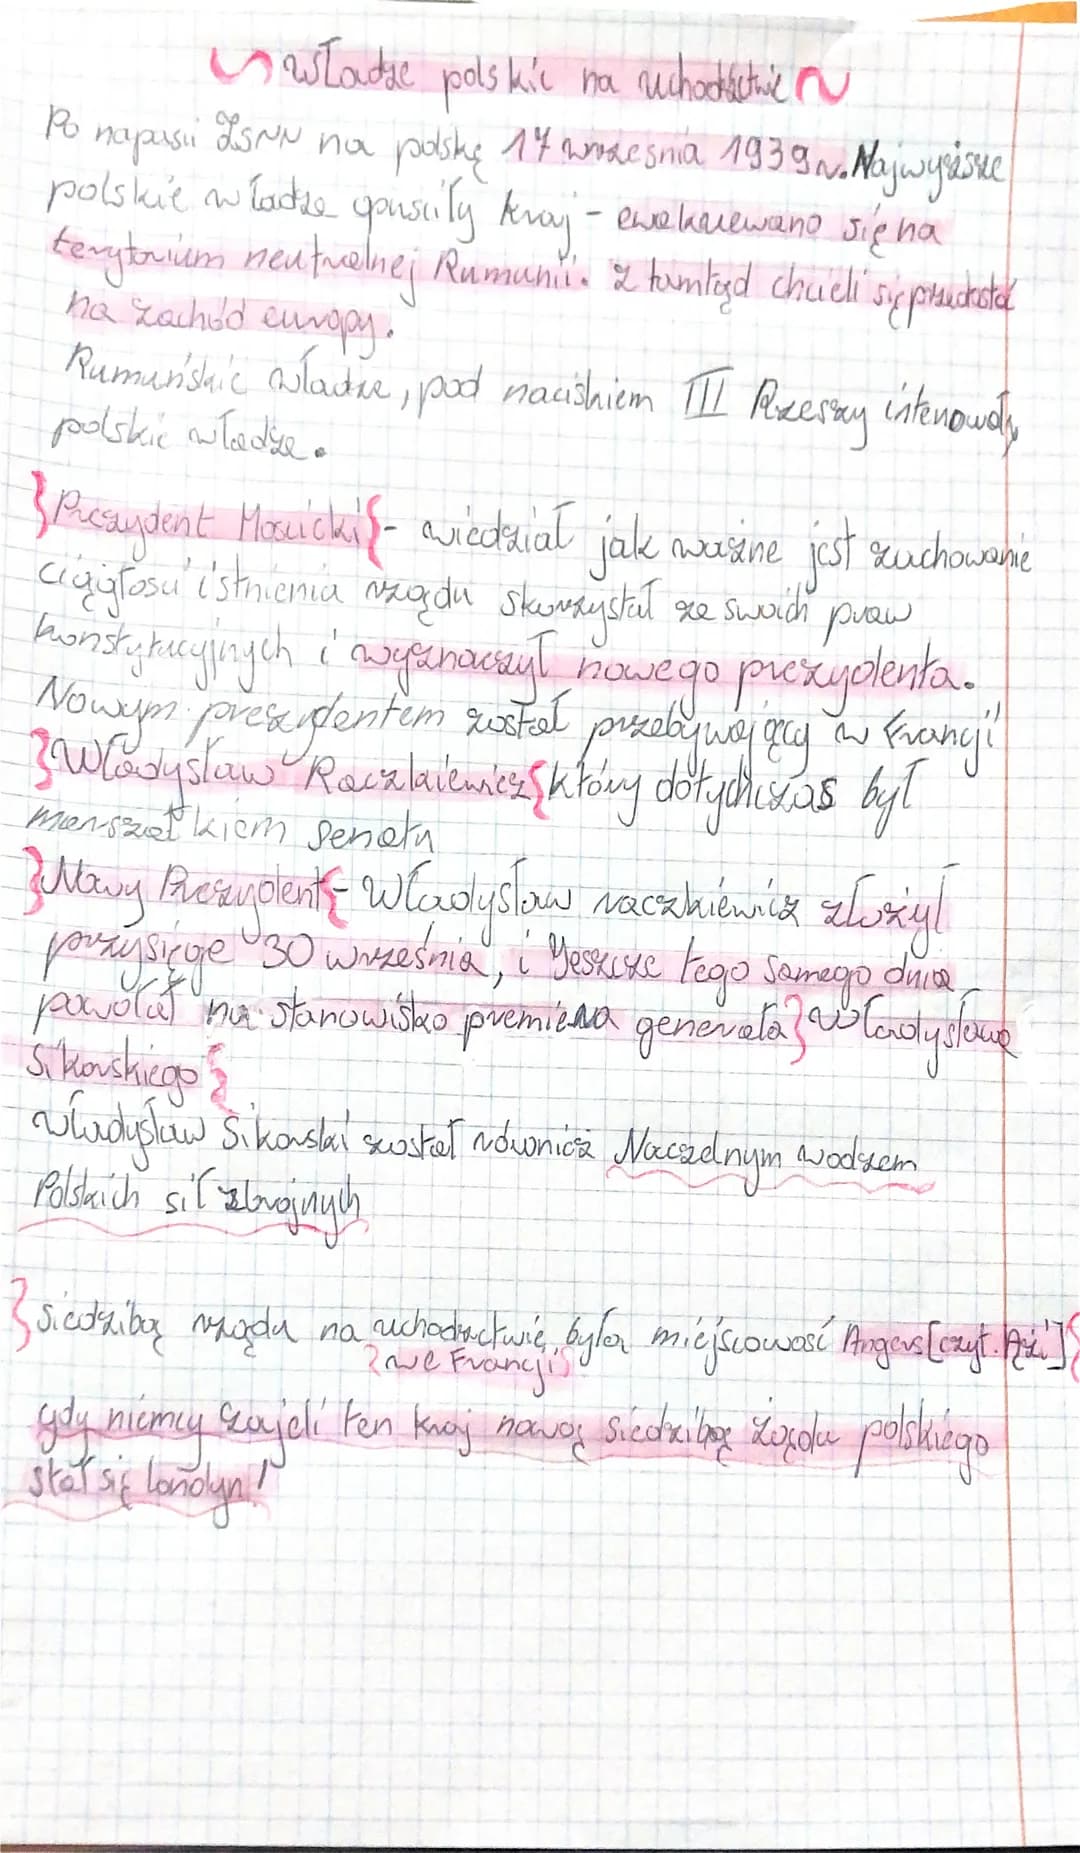 Władze polskie na uchodźctwie
Po napaści ZSRR na polskę 17 września 1939r. Najwyższe
polskie władze opuściły kraj - ewakuewano się na
terytorium neutralnej Rumunii. Z tamtąd chcieli się przedostać
na zachód europy.
Rumuńskie władze, pod naciskiem III Rzeszy intenowały
polskie władze.
}Prezydent Mościcki{ - wiedział jak ważne jest zachowanie
ciągłosci istnienia rządu skorzystał ze swoich praw
konstytucyjnych i wyznaczył nowego prezydenta.
Nowym prezydentem został przebywający w Francji
}Władysław Raczkiewicz{ który dotychczas był
marszałkiem senatu
}Nowy Prezydent{ - Władysław raczkiewicz złożył
przysięgę 30 września, i Jeszcze tego samego dnia
powołał na stanowisko premiera generała } Władysława
Sikorskiego {
Władysław Sikorski został również Naczelnym wodzem
Polskich sił zbrojnych
} siedzibą rządu na uchodzctwie była miejscowość Angers [czyt. Ążi] {
} we Francji {
gdy niemcy zajeli ten kraj nową siedzibą żądu polskiego
stał się londyn!